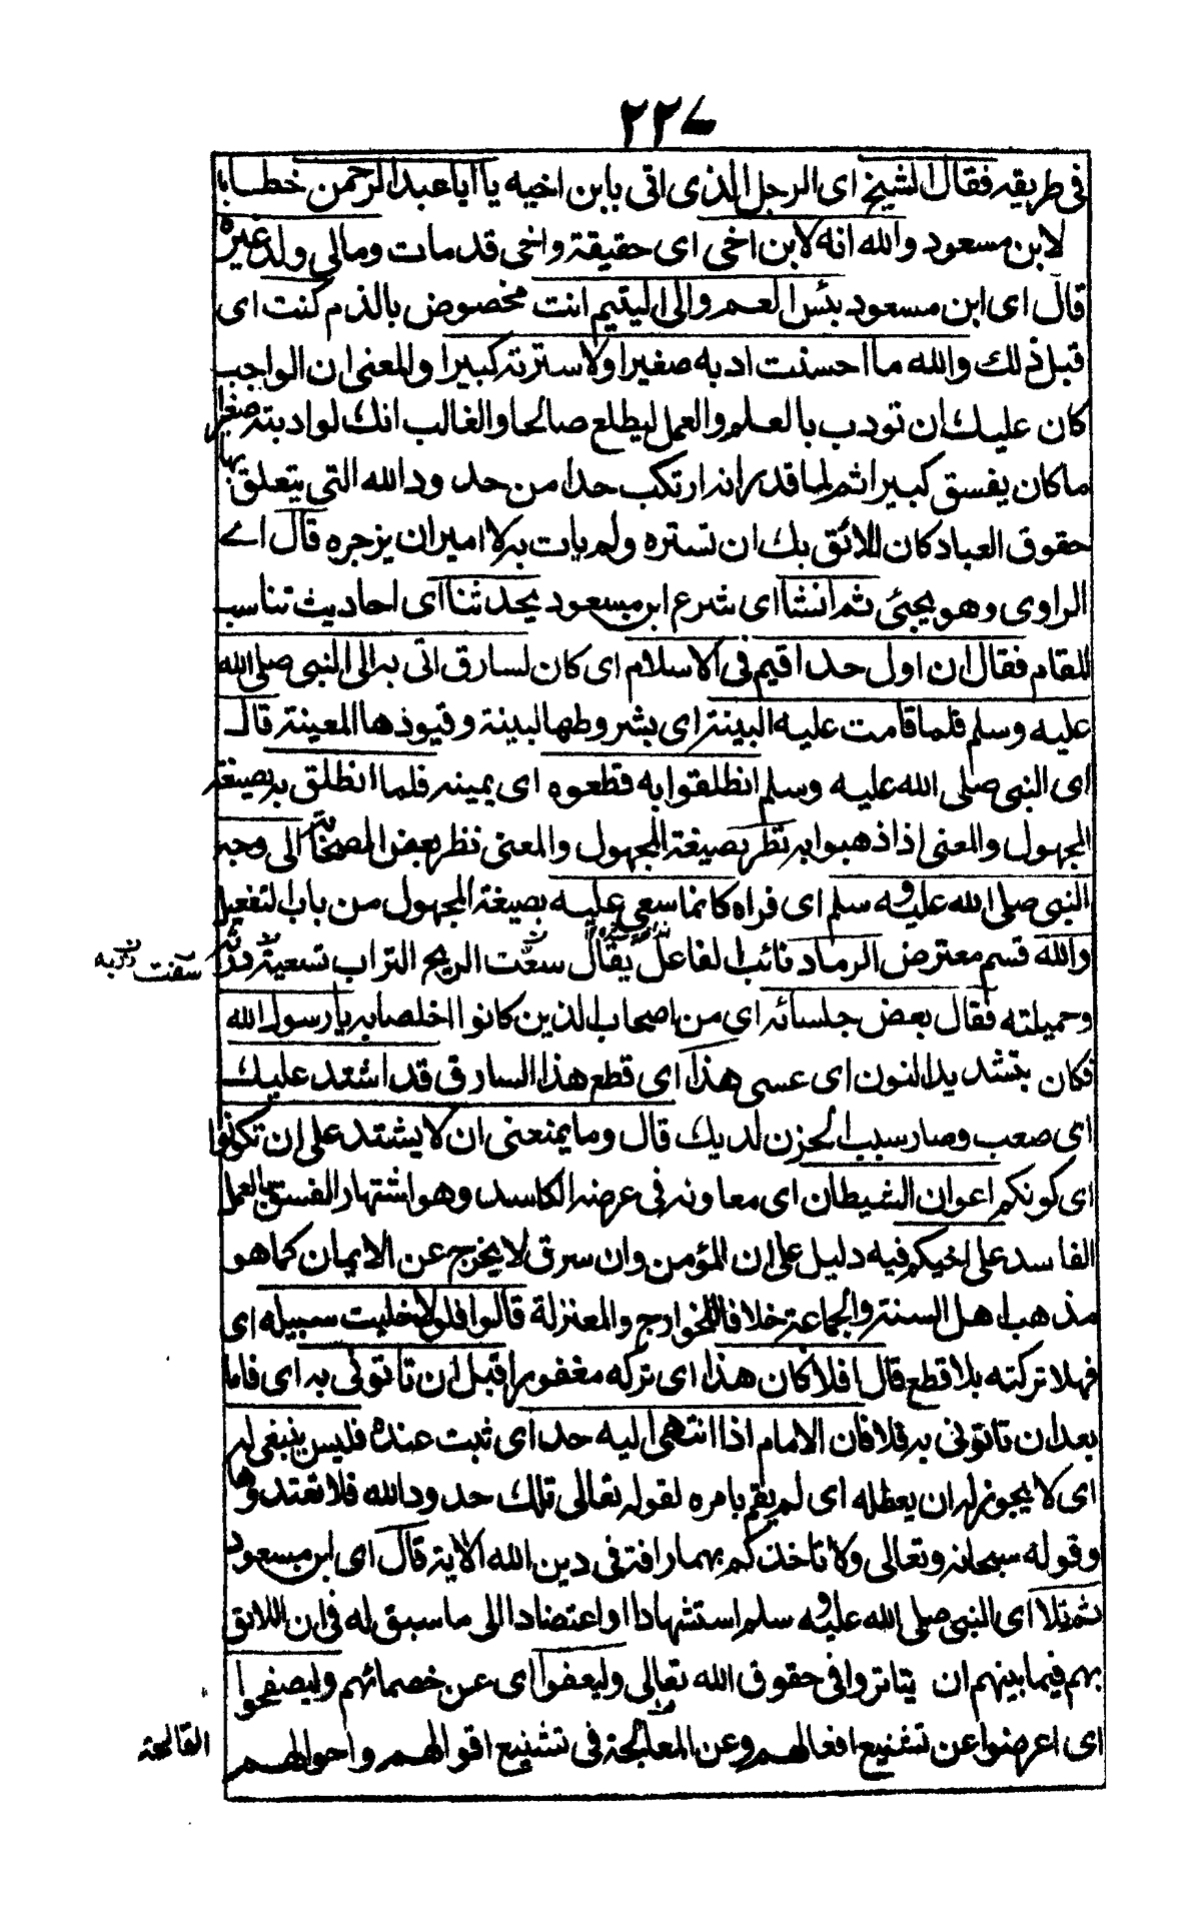 ٢٢٧
في طريقه فقال الشيخ اى الرجل الذى اتى بابن اخيه يا ابا عبد الرحمن خطابا
لابن مسعود والله انه لابن اخى اى حقيقة واخى قد مات ومالى ولد غيره
قال اى ابن مسعود بئس العم والى اليتيم انت مخصوص بالذم كنت اى
قبل ذلك والله ما احسنت ادبه صغيرا ولا سترته كبيرا والمعنى ان الواجب
كان عليك ان تودب بالعلم والعمل ليطلع صالحا والغالب انك لو ادبته صغيرا
ما كان يفسق كبيرا ثم لما قدر انه ارتكب حدا من حدود الله التى يتعلق بها
حقوق العباد كان اللائق بك ان تستره ولم يات به لامير ان يزجره قال اے
الراوى وهو يحيى ثم انشا اى شرع ابن مسعود يحدثنا اى احاديث تناسب
للمقام فقال ان اول حد اقيم فى الاسلام اى كان لسارق اتى به الى النبى صلى الله
عليه وسلم فلما قامت عليه البينة اى بشروطها البينة وقيوذها المعينة قال
اى النبى صلى الله عليه وسلم انطلقوا به فقطعوه اى يمينه فلما انطلق به بصيغة
المجهول والمعنى اذا ذهبوا به نظر بصيغة المجهول والمعنى نظر بعض الصحابة الى وجه
النبى صلى الله عليه وسلم اى فراه كانما سعى عليه بصيغة المجهول من باب التفعيل
والله قسم معترض الرماد نائب الفاعل يقال سعت الريح التراب تسعية ذرته
سفت ذربه
وحميلته فقال بعض جلسائه اى من اصحاب الذين كانوا اخلصا به يا رسول الله
فكان بتشديد النون اى عسى هذا اى قطع هذا السارق قد اشتد عليك
اى صعب وصار سبب الحزن لديك قال وما يمنعنى ان لا يشتد على ان تكونوا
اى كونكم اعوان الشيطان اى معاونه فى عرضه الكاسد وهو اشتهار الفسق بالعمل
الفاسد على اخيكم فيه دليل على ان المؤمن وان سرق لا يخرج عن الايمان كما هو
مذهب اهل السنة والجماعة خلافا للخوارج والمعنزلة قالوا فلولا خليت سبيله اى
فهلا تركته بلا قطع قال افلا كان هذا اى تركه مغفورا قبل ان تاتونى به اى فاما
بعد ان تاتونى به فلا فان الامام اذا انتهى اليه حد اى ثبت عنده فليس ينبغى له
اى لا يجوز له ان يعطله اى لم يقم بامره لقوله تعالى تلك حدود الله فلا تعتدوها
وقوله سبحانه وتعالى ولا تاخذكم بهما رافة فى دين الله الآية قال اى ابن مسعود
ثم تلا اى النبى صلى الله عليه وسلم استشهادا او اعتضادا الى ما سبق له فى ان اللائق
بهم فيما بينهم ان يتاتروا فى حقوق الله تعالى وليعفوا اى عن خصمائهم وليصفحوا
اى اعرضوا عن تشنيع افعالهم وعن المعالجة فى تشنيع اقوالهم واحوالهم
القالعة